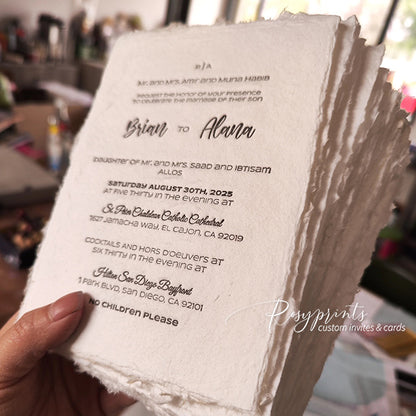 B | A
Mr. and Mrs. Amir and Muna Habib
Request the honor of your presence
to celebrate the marriage of their son
Brian to Alana
daughter of Mr. and Mrs. Saad and Ibtisam
Allos
Saturday August 30th, 2025
at five thirty in the evening at
St. Peter Chaldean Catholic Cathedral
1627 Jamacha Way, El Cajon, CA 92019
Cocktails and hors d'oeuvers at
six thirty in the evening at
Hilton San Diego Bayfront
1 Park Blvd, San Diego, CA 92101
No children please
Rosyprints
custom invites & cards